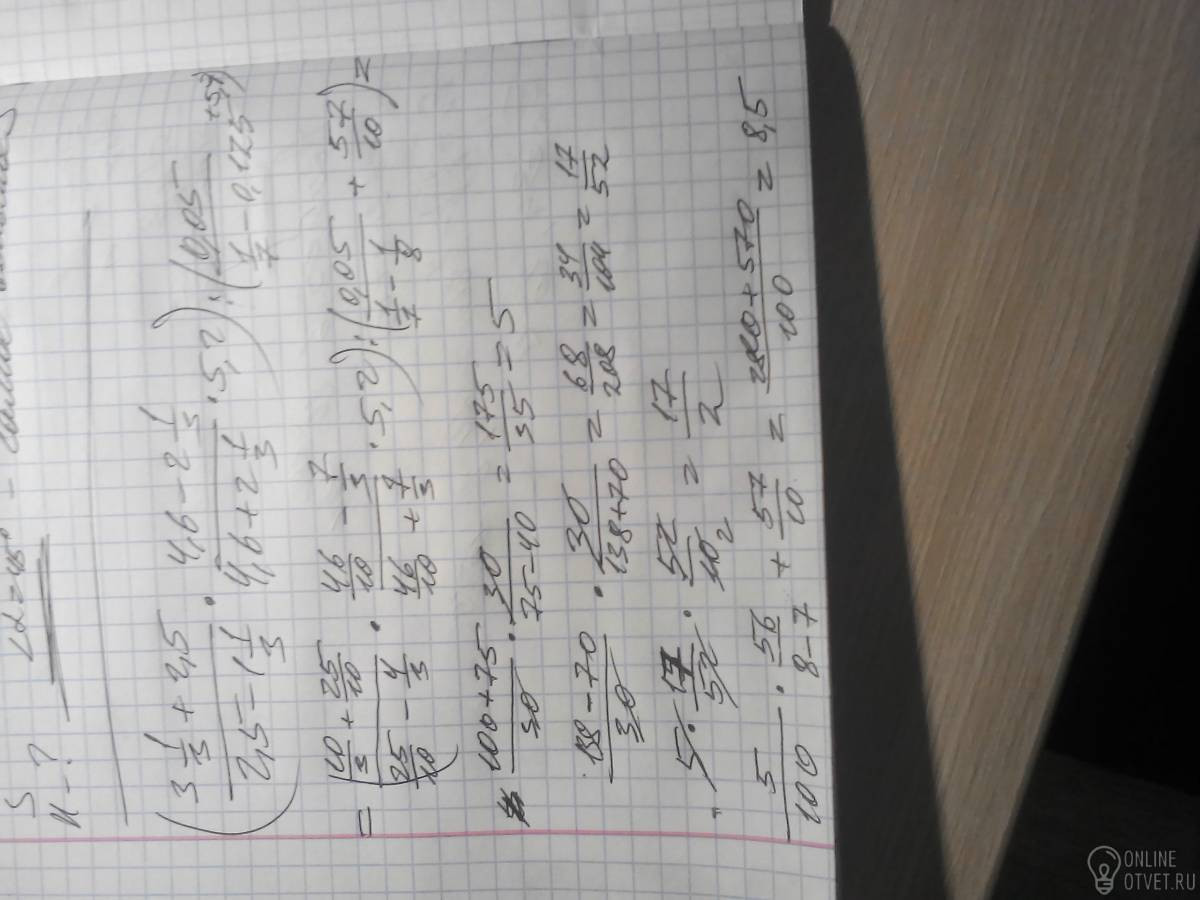 S
n - ? ∠α = 45° -
(3 1/3 + 2,5)/(2,5 - 1 1/3) · (4,6 - 2 1/3)/(4,6 + 2 1/3) · 5,2) : (0,05/(1/7 - 0,125) + 5,7)
= ((10/3 + 25/10)/(25/10 - 4/3) · (46/10 - 7/3)/(46/10 + 7/3) · 5,2) : (0,05/(1/7 - 1/8) + 57/10) =
(100 + 75)/30 · 30/(75 - 40) = 175/35 = 5
(138 - 70)/30 · 30/(138 + 70) = 68/208 = 34/104 = 17/52
5 · 17/52 · 52/10 2 = 17/2
5/100 · 56/(8 - 7) + 57/10 = (280 + 570)/100 = 8,5
ONLINE
OTVET.RU